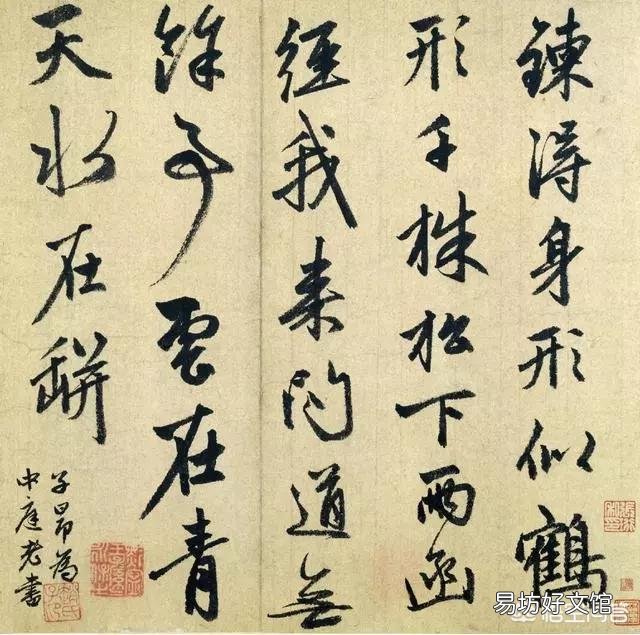 鍊得身形似鶴
形千株松下兩函
經我来問道無
餘事雲在青
天水在缾
子昂為
中庭老書
易坊好文馆